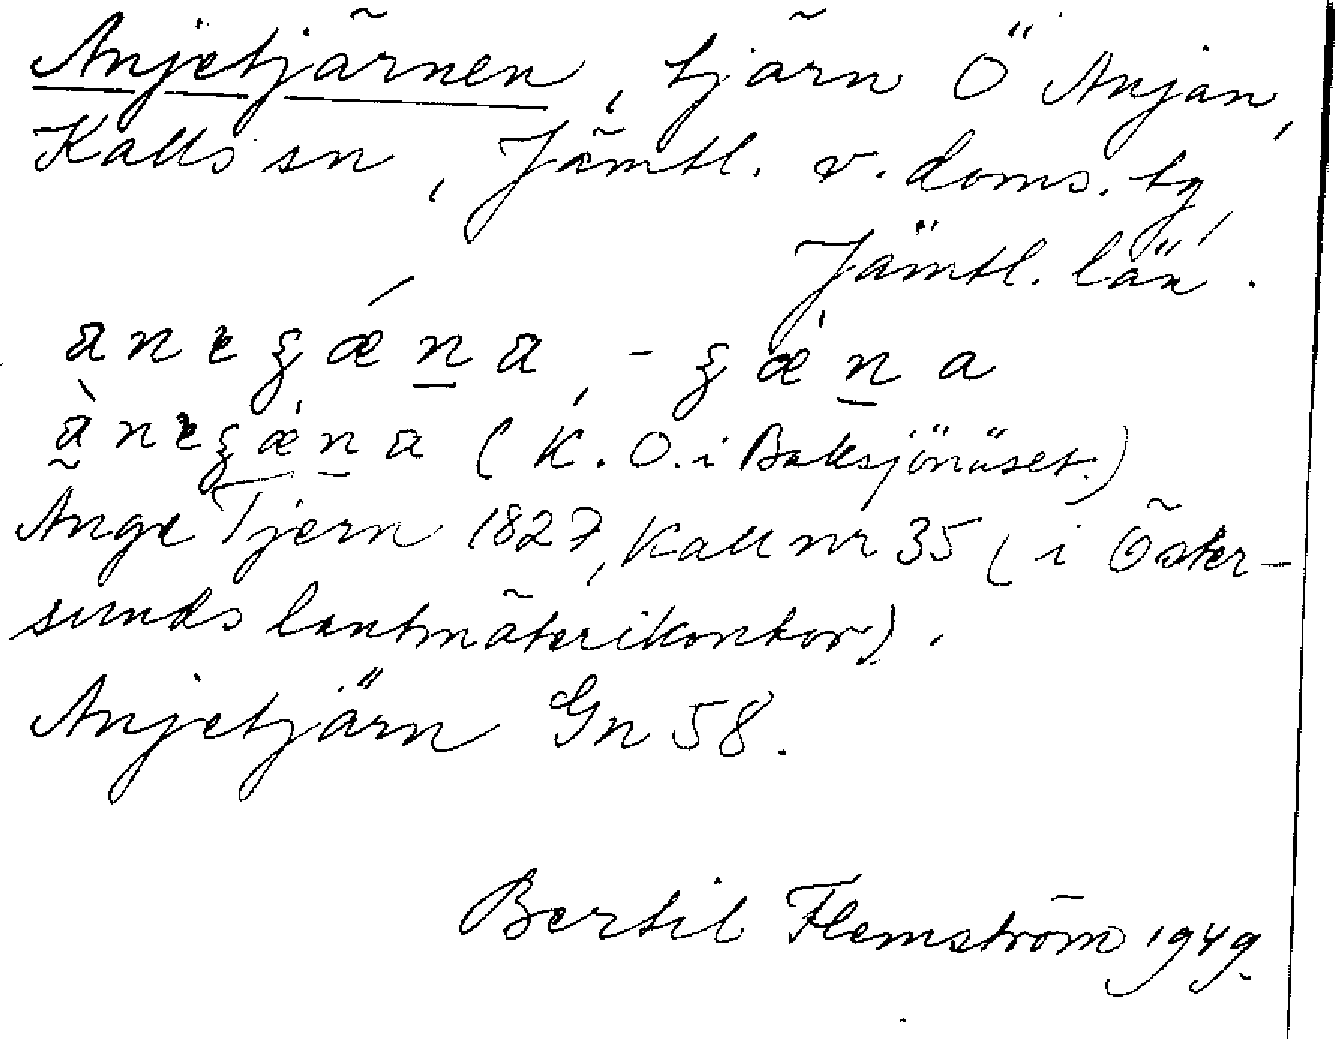 Anjetjärnen, tjärn Ö Anjan,
Kalls sn, Jämtl. v. doms. tg,
Jämtl. län.
(K. O. i Baksjönäset.)
Ange Tjern 1827, Kall nr 35 (i Öster-
sunds lantmäterikontor).
Anjetjärn Gn 58.
Bertil Flemström 1949.